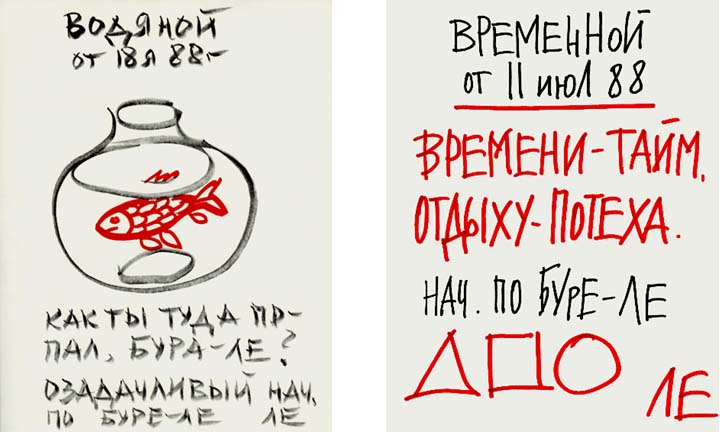 ВОДЯНОЙ
ОТ 18 Я 88-
КАК ТЫ ТУДА ПР-
ПАЛ, БУРА-ЛЕ?
ОЗАДАЧЛИВЫЙ НАЧ.
ПО БУРЕ-ЛЕ ЛЕ
ВРЕМЕННОЙ
ОТ 11 ИЮЛ 88
ВРЕМЕНИ-ТАЙМ,
ОТДЫХУ-ПОТЕХА.
НАЧ. ПО БУРЕ-ЛЕ
ДПО
ЛЕ